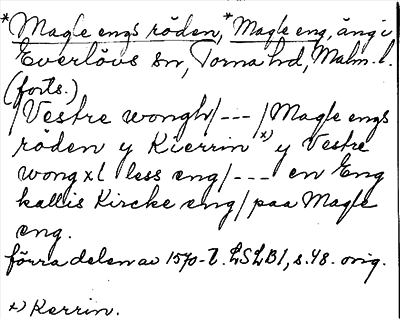 *Magle engs röden, *Magle eng, äng i
Everlövs sn, Torna hd, Malm. l.
(forts.)
/Vestre wongh/--- /Magle engs
röden y Kierrin x) y Vestre
wong x l less eng/--- en Eng
kallis Kircke eng/ paa Magle
eng.
förra delen av 1570-t. LSLB1, s. 48. orig.
x) Kerrin.